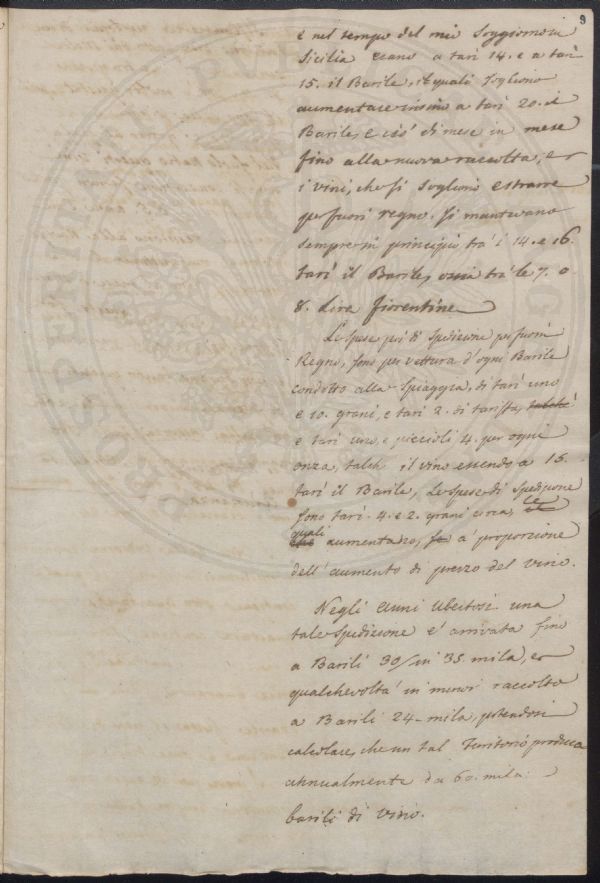 9
e nel tempo del mio Soggiorno in
Sicilia erano a tarì 14. e a tarì
15. il Barile, il quali Sogliono
aumentare insino a tarì 20. il
Barile, e ciò di mese in mese
fino alla nuova raccolta, e
i vini, che si Sogliono estrarre
per fuori regno. Si mantevano
sempre in principio trà i 14. e 16.
tarì il Barile, ossia trà le 7. o
8. Lire fiorentine
Le spese poi di Spedizione per fuori
Regno, sono per vettura d'ogni Barile
condotto alla Spiaggia, di tarì uno
e 10. grani, e tarì 2. di tariffa, talchè
e tarì uno, e piccioli 4. per ogni
onza, talch il vino essendo a 15.
tarì il Barile, Le Spese di Spedizione
sono tarì 4. e 2. grani circa, le
quali aumentano, a proporzione
dell'aumento di prezzo del vino.
Negli Anni Ubertosi una
tale Spedizione è arrivata fino
a Barili 30/in 35 mila, e
qualchevolta in minor raccolto
a Barili 24-mila, potendosi
calcolare, che un tal Territorio produca
annualmente da 60. mila
barili di vino.
PROSPERITATI PUBLICAE